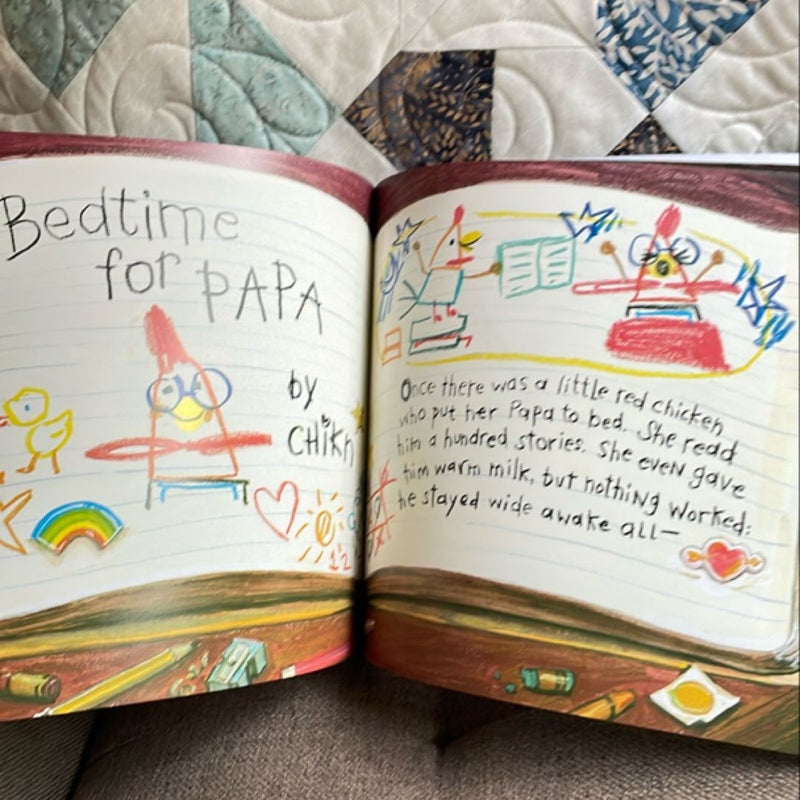 Bedtime
for PAPA
by
CHiKn
12
Once there was a little red chicken
who put her Papa to bed. She read
him a hundred stories. She even gave
him warm milk, but nothing worked:
he stayed wide awake all—